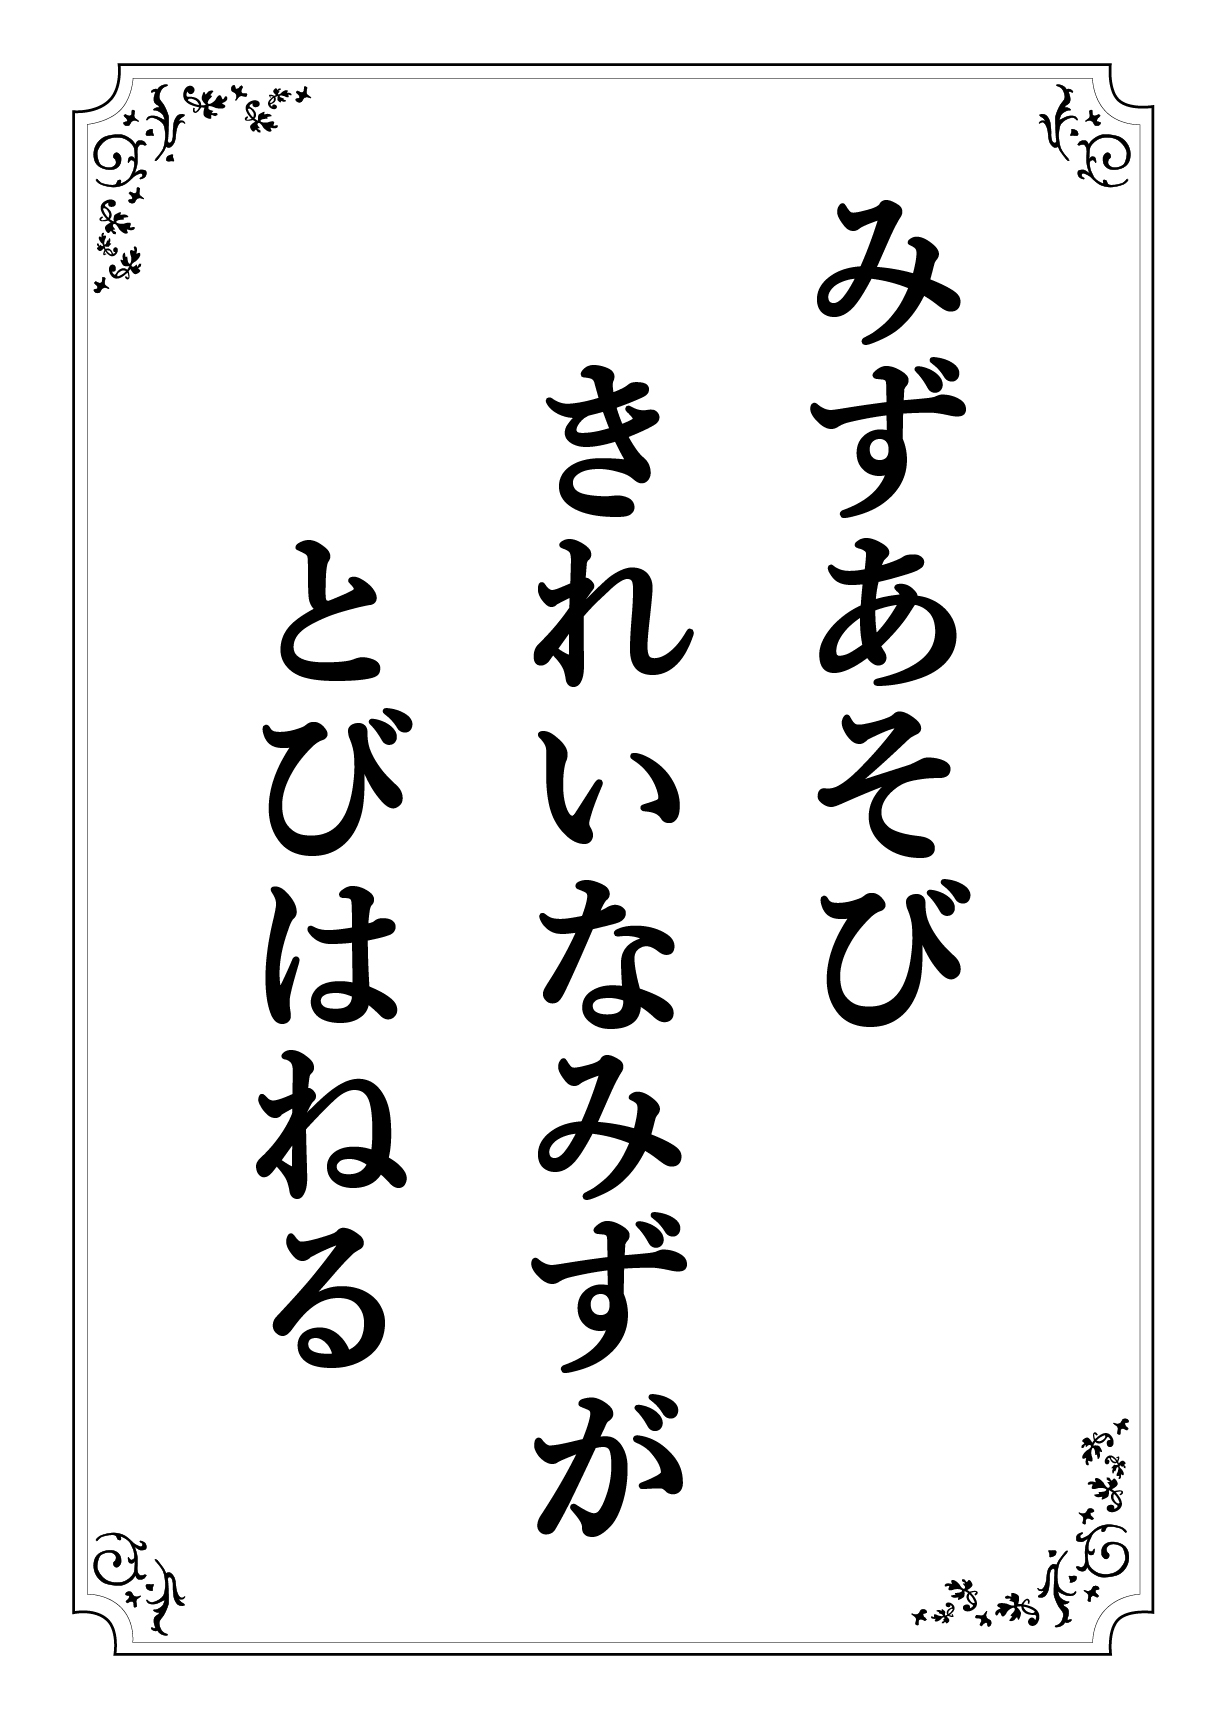 みずあそび
きれいなみずが
とびはねる